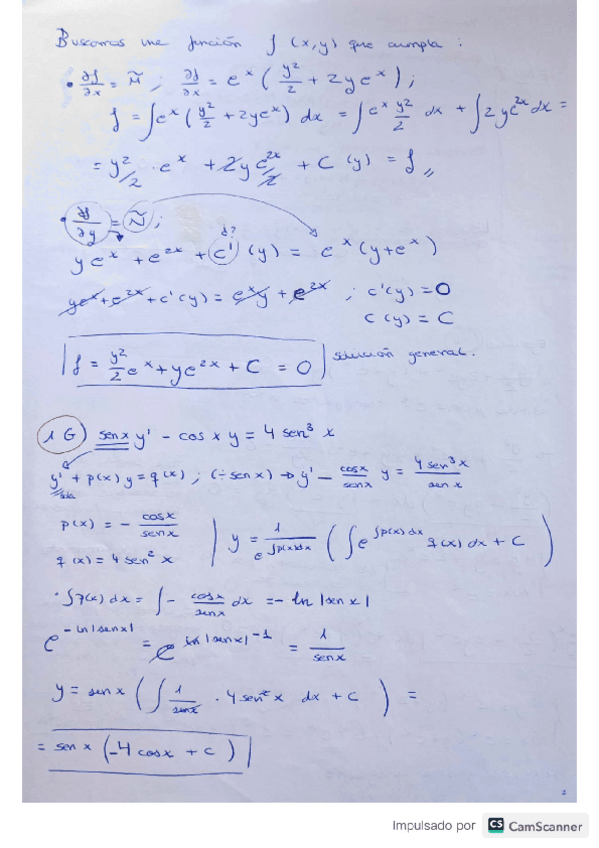 Buscamos una función f (x,y) que cumpla :
• ∂f/∂x = M̃ ; ∂f/∂x = e^x ( y²/2 + 2ye^x ) ;
f = ∫e^x ( y²/2 + 2ye^x ) dx = ∫e^x y²/2 dx + ∫2ye^2x dx =
= y²/2 · e^x + 2y e^2x/2 + C (y) = f //
• ∂f/∂y = Ñ ;
d?
ye^x + e^2x + c' (y) = e^x (y+e^x)
ye^x + e^2x + c'(y) = e^x y + e^2x ; c'(y) = 0
c (y) = C
f = y²/2 e^x + ye^2x + C = 0 solución general.
1 G) senx y' - cos x y = 4 sen³ x
y' + p(x) y = q(x) ; (÷ sen x) → y' - cosx/senx y = 4 sen³x/sen x
p(x) = - cosx/senx
y = 1/e^∫p(x)dx ( ∫e^∫p(x)dx q(x) dx + C )
q (x) = 4 sen² x
· ∫p(x) dx = ∫- cosx/senx dx = - ln |sen x|
e^-ln|senx| = e^ln|senx|^-1 = 1/senx
y = sen x ( ∫ 1/senx · 4 sen² x dx + C ) =
= sen x (-4 cosx + C )
2
Impulsado por CS CamScanner